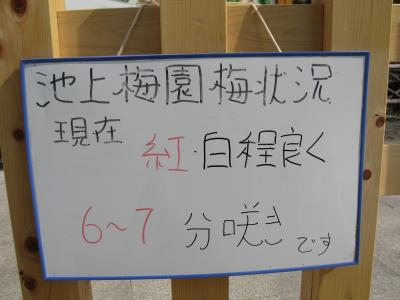 池上梅園梅状況
現在
紅・白程良く
6～7 分咲き
です